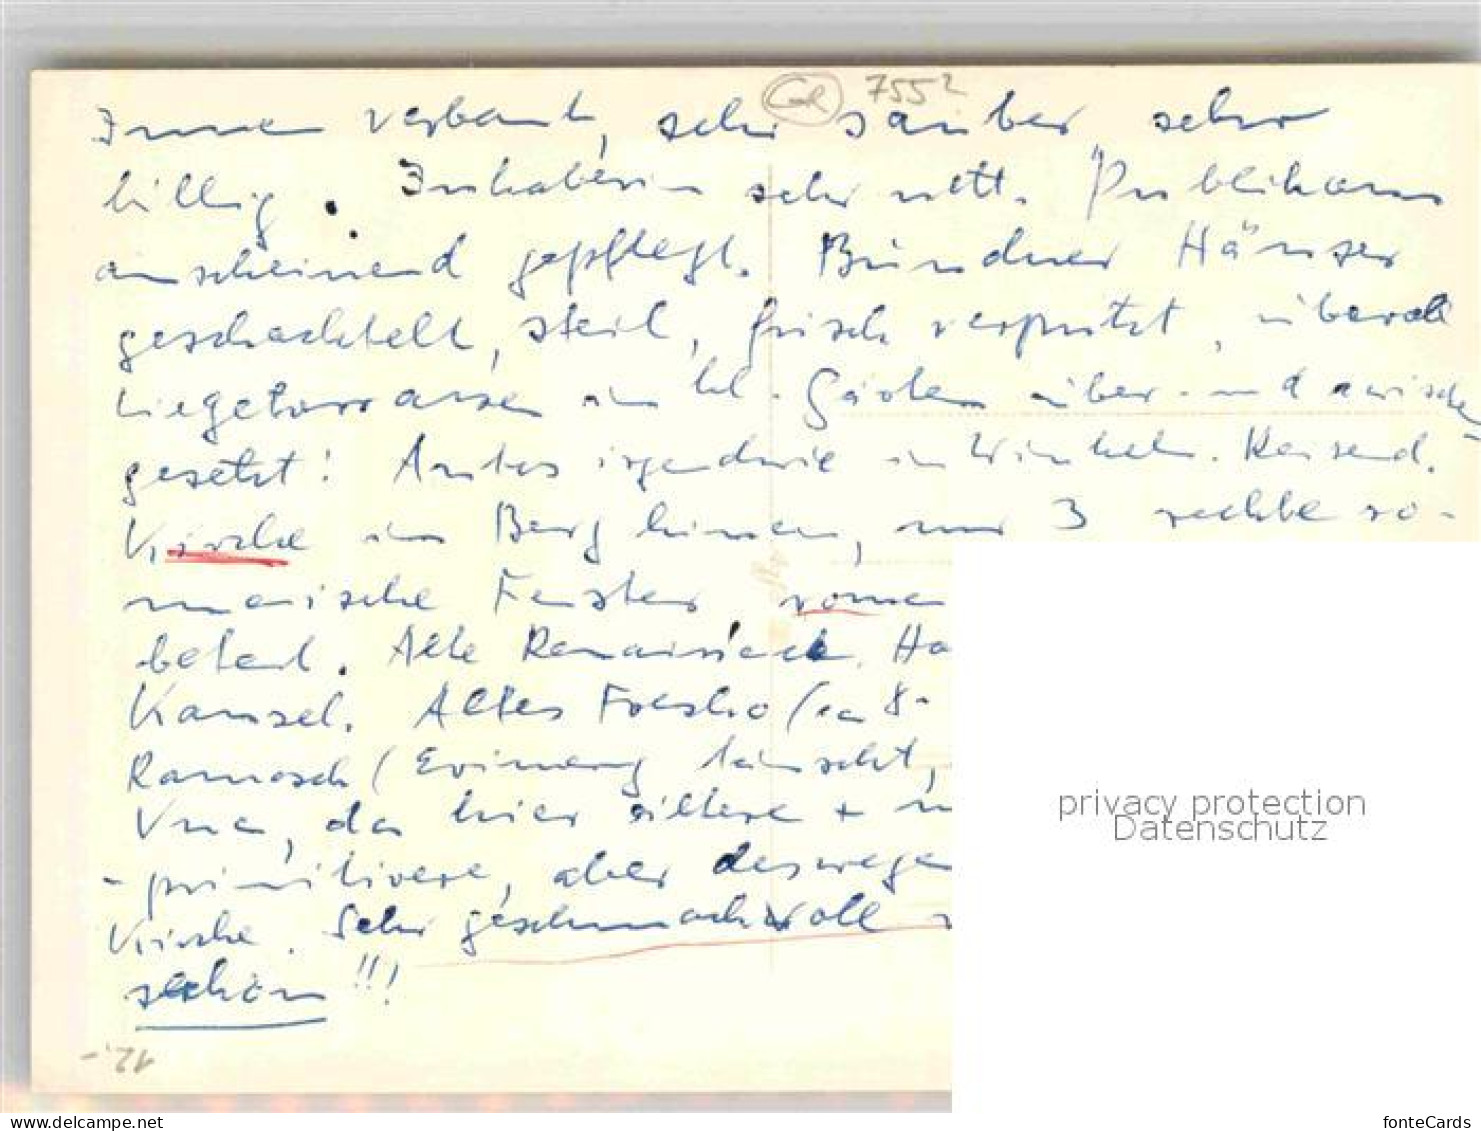 Grl 7552
Innen verbaut, sehr sauber, sehr
billig. Inhaberin sehr nett. Publikum
anscheinend gepflegt. Bündner Häuser
geschachtelt, steil, frisch verputzt, überall
Liegeterrassen in kl. Gärten über- und zwischen-
gesetzt! Autos irgendwie in Winkeln. Reisend.
Kirche im Berg hinein, nur 3 rechte ro-
manische Fenster, roman
belad. Alte Renaissance Ha
Kanzel. Altes Fresko (ca 8-
Ramosch (Erinnerg täuscht,
Vna, da hier ältere + 
- primitivere, aber deswege
Kirche. Sehr geschmackvoll
schön!!!
12,-
privacy protection
Datenschutz
www.delcampe.net
fonteCards